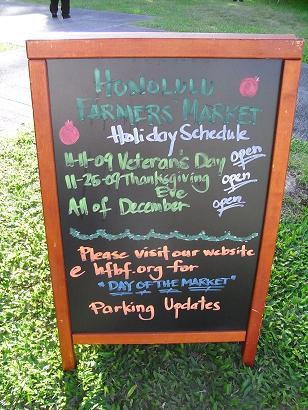 HONOLULU
FARMERS MARKET
Holiday Schedule
11-11-09 Veteran's Day open
11-25-09 Thanksgiving Eve open
All of December open
Please visit our website
@ hfbf.org for
"DAY OF THE MARKET"
Parking Updates